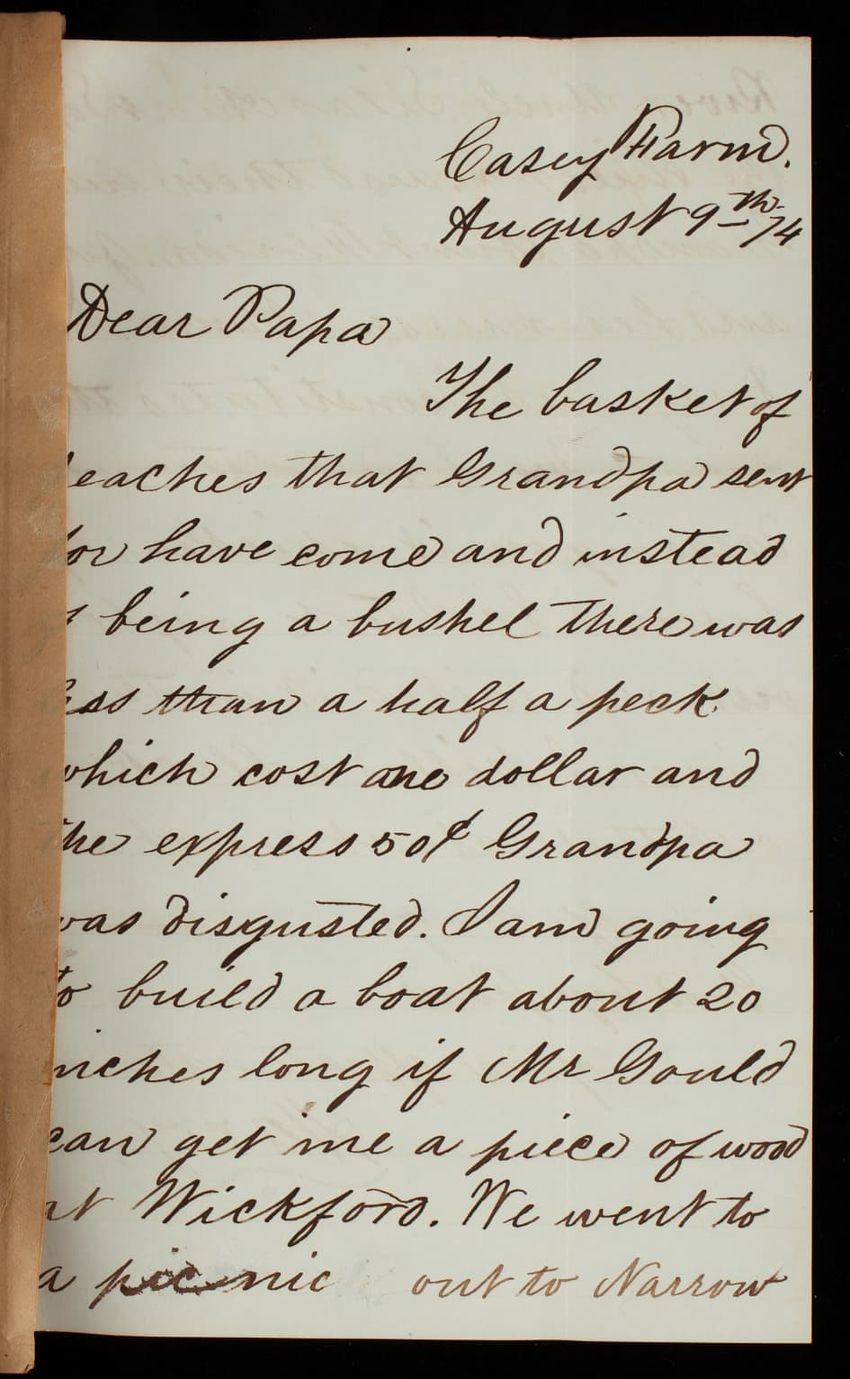 Casey Farm.
August 9th 74
Dear Papa
The basket of
eaches that Grandpa sent
for have come and instead
being a bushel there was
ess than a half a peck
which cost one dollar and
the express 50¢ Grandpa
was disgusted. I am going
to build a boat about 20
nches long if Mr Gould
can get me a piece of wood
at Wickford. We went to
a picnic out to Narrow